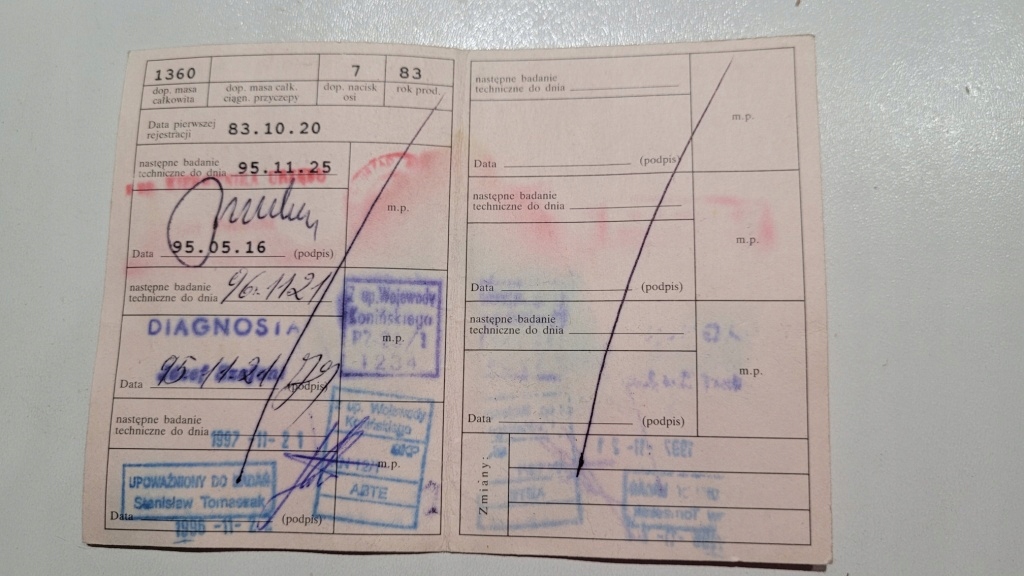 1360 7 83
dop. masa całkowita dop. masa całk. ciągn. przyczepy dop. nacisk osi rok prod.
Data pierwszej rejestracji 83.10.20
następne badanie
techniczne do dnia 95.11.25
m.p.
Data 95.05.16 (podpis)
następne badanie
techniczne do dnia 96.11.21
Z up. Wojewody
Konińskiego
m.p.
1234
DIAGNOSTA
Data 95.11.21 (podpis)
następne badanie
techniczne do dnia 1997 -11- 21
up. Wojewody
Konińskiego
SKP
m.p.
ABTE
UPOWAŻNIONY DO BADAŃ
Stanisław Tomaszak
Data 1996 -11- 2 (podpis)
następne badanie
techniczne do dnia
m.p.
Data (podpis)
następne badanie
techniczne do dnia
m.p.
Data (podpis)
następne badanie
techniczne do dnia
m.p.
Data (podpis)
Zmiany: